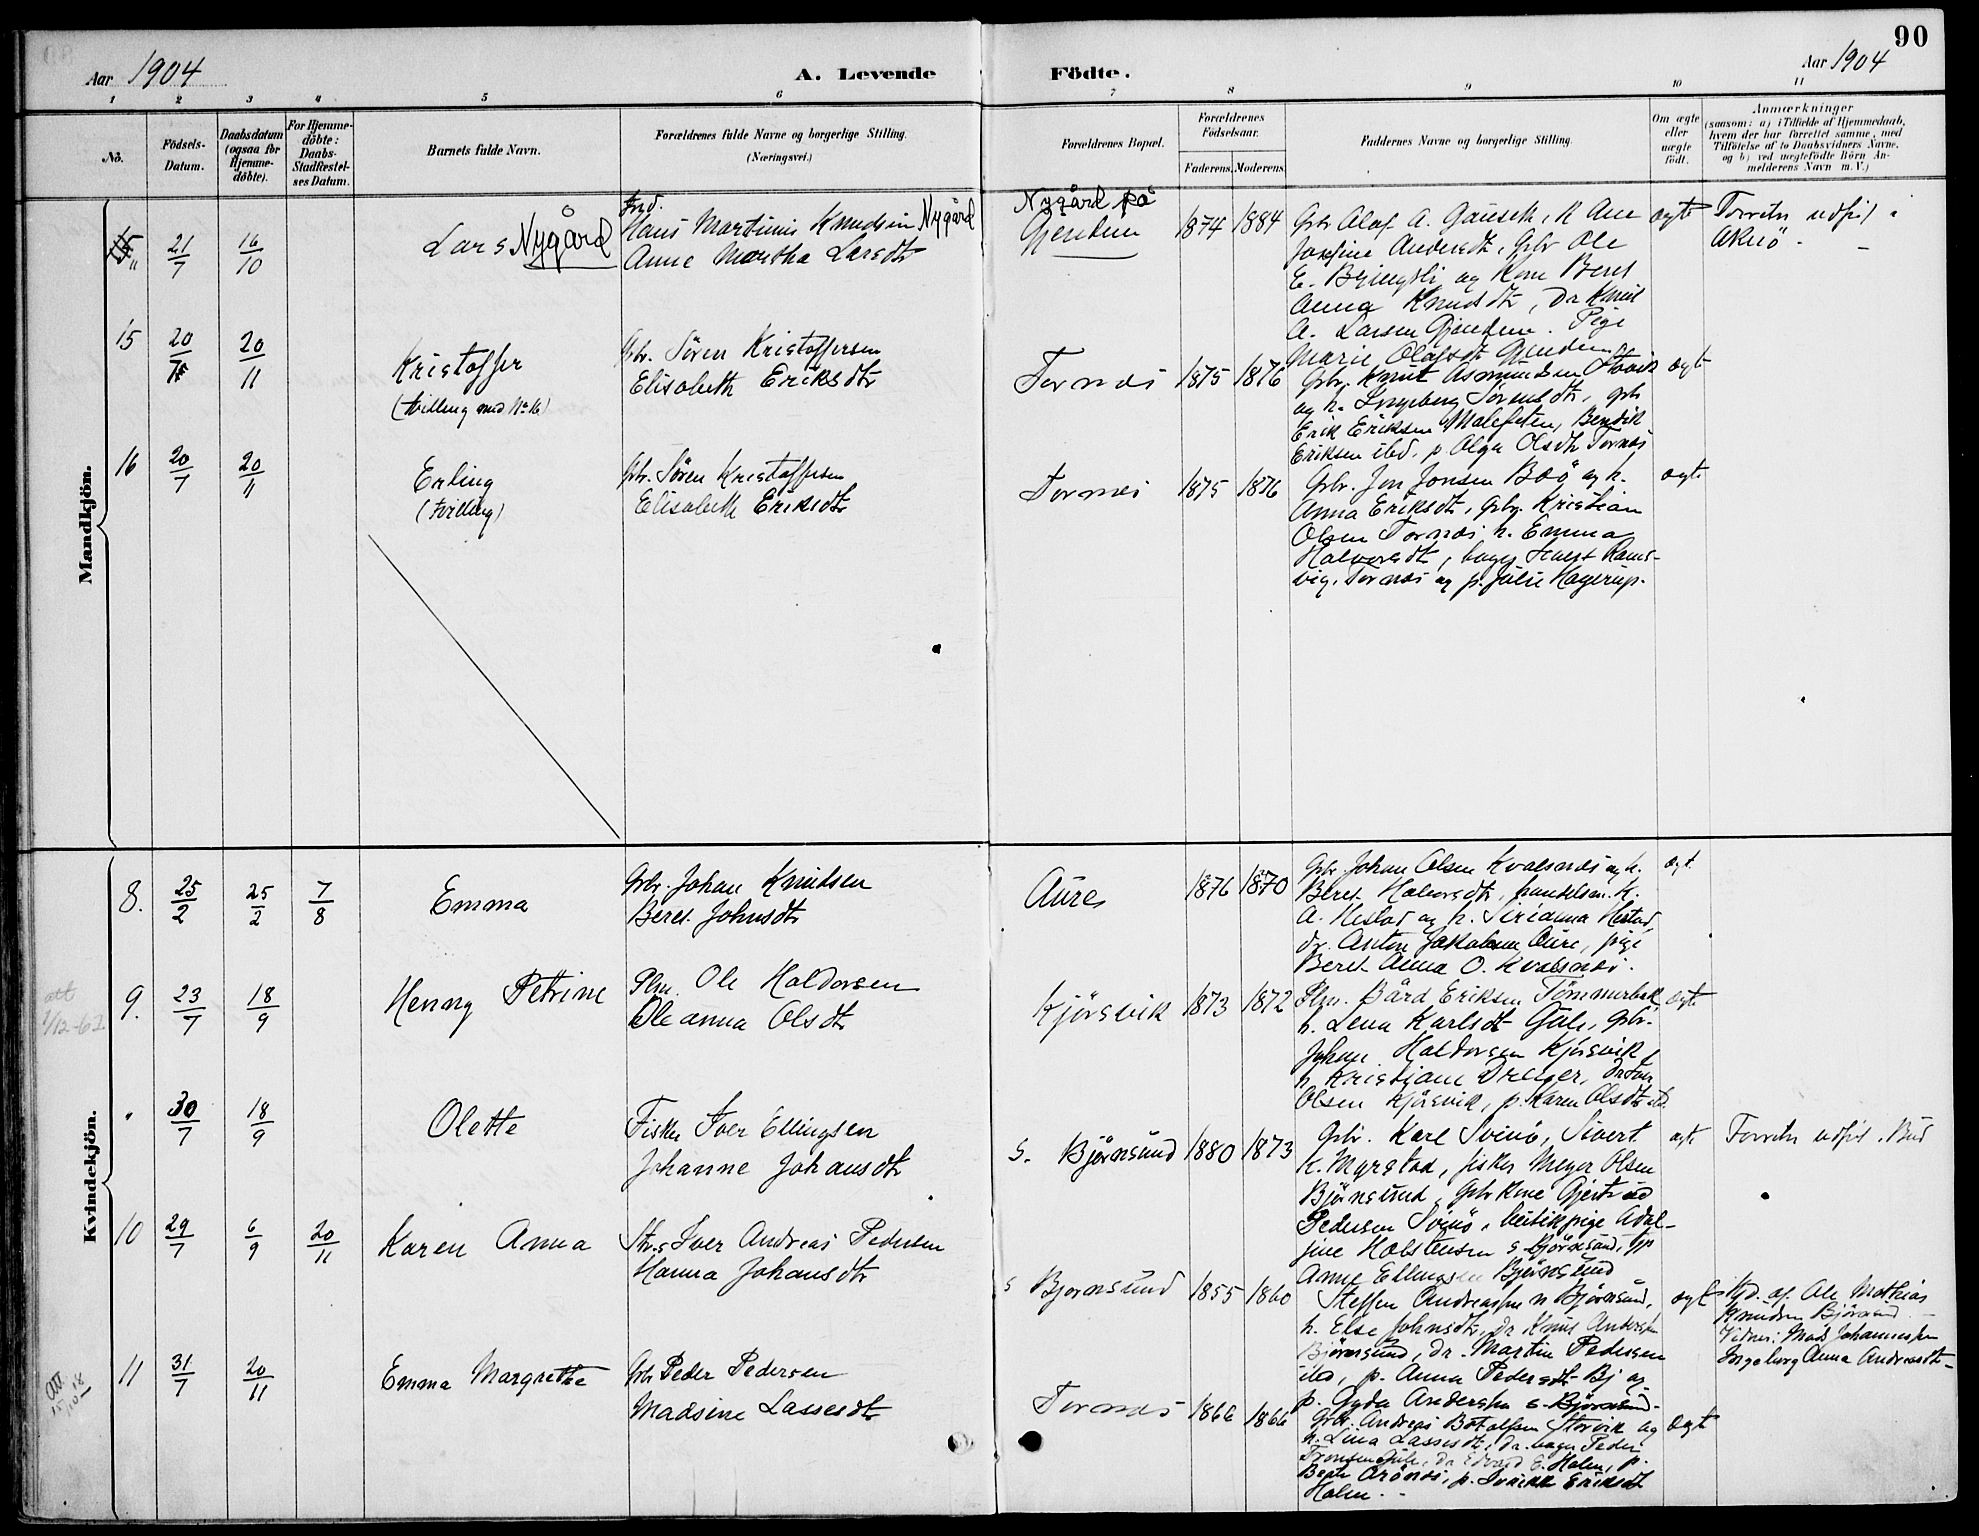 90
Aar 1904
A. Levende Födte.
Aar 1904
1 2 3 4 5 6 7 8 9 10 11
No.
Födsels-Datum.
Daabsdatum (ogsaa for Hjemme-döbte).
For Hjemme-döbte: Daabs-Stadfæstel-ses Datum.
Barnets fulde Navn.
Forældrenes fulde Navne og borgerlige Stilling. (Næringsvei.)
Forældrenes Bopæl.
Forældrenes Födselsaar.
Faderens. Moderens.
Faddernes Navne og borgerlige Stilling.
Om ægte eller uægte födt.
Anmærkninger
(saasom: a) i Tilfælde af Hjemmedaab,
hvem der har forrettet samme, med
Tilföielse af to Daabsvidners Navne,
og b) ved uægtefödte Börn An-
melderens Navn m. V.)
Mandkjön.
21/7 16/10
Lars Nygård
Hans Martinus Knudsen Nygård
Anne Martha Larsdtr
Nygård på
Gjendem
1874 1884
Gbr Olaf A. Gausek, K Ane
Josefine Andersdtr, Gbr Ole
E. Bringsli og Kone Beret
Anna Knudsdtr, Dr Knut
A. Larsen Gjendem. Pige
Marie Olafsdtr Gjendem
ægte
Forretn udført i
Akerö
15 20/7 20/11
Kristoffer
(tvilling med No 16)
Gbr. Sören Kristoffersen
Elisabeth Eriksdtr
Tornes
1875 1876
Gbr. Knut Asmundsen Stavik
og h. Ingeborg Sörensdtr, gbr
Erik Eriksen Malefeten, Bendik
Eriksen ibd. p. Olga Olsdtr Tornes
ægt
16 20/7 20/11
Erling
(tvilling)
Gbr. Sören Kristoffersen
Elisabeth Eriksdtr
Tornes
1875 1876
Gbr. Jon Jonsen Boö og h.
Anna Eriksdtr, Gbr. Kristian
Olsen Tornes h. Emma
Halvorsdtr,
vig, Tornes og p. Julie Hagerup.
ægte
Kvindekjön.
8. 25/2 25/2 7/8
Emma
Gbr. Johan Knudsen
Beret Johnsdtr
Aure
1876 1870
Gbr. Johan Olsen Kvalsnes og h.
Beret Halvorsdtr, handelsm. K.
A. Hestad og h. Sirianna Hestad,
dr. Anton Jakobsen Aure, pige
Beret Anna O. Kvalsnes.
ægt
9. 23/7 18/9
att
1/12-62
Henny Petrine
Plm. Ole Haldorsen
Oleanna Olsdtr
Kjörsvik
1873 1872
Plm. Bård Eriksen Tömmerbak
h. Lena Karlsdt Gule, Gbr.
Johan Haldorsen Kjörsvik
h. Kristiane Dreyer,
Olsen Kjörsvik, p. Karen Olsdtr ibd.
ægte
" 30/7 18/9
Olette
Fisker Iver Ellingsen
Johanne Johansdtr
S. Björnsund
1880 1873
Gbr. Karl Svinö, Sivert
K. Myrstad, fisker Meyer Olsen
Björnsund, Gbr Kone Gjertrud
Pedersen Svinö, butikpige Adol-
fine Holstensen s Björnsund,
Anne Ellingsen Björnsund
ægte
Forretn udført i Bud
10 29/7 6/9 20/11
Karen Anna
Str. Iver Andreas Pedersen
Hanna Johansdtr
S Bjornsund
1855 1860
Steffen Andreassen n Björnsund,
h. Else Johnsdtr, dr Knut Andersen
Björnsund, dr. Martin Pedersen
ibd, p. Anna Pedersdt Bj og
p. Gyda Andersen s. Björnsund.
ægt
Hjd. af Ole Mathias
Knudsen Björnsund
Vidner: Mads Johannessen
Ingeborg Anna Andreasdtr
11 31/7 20/11
Att
Emma Margrethe
Gbr Peder Pedersen
Madsine Lassesdtr
Tornes
1866 1866
Gbr. Andreas Botolfsen Storvik og
h. Lina Lassesdtr, dr. Peder
Tronsen Gule, dr Edvard E. Holen, p.
Berte Arönes, p. Eriksdt
Holen.
ægt